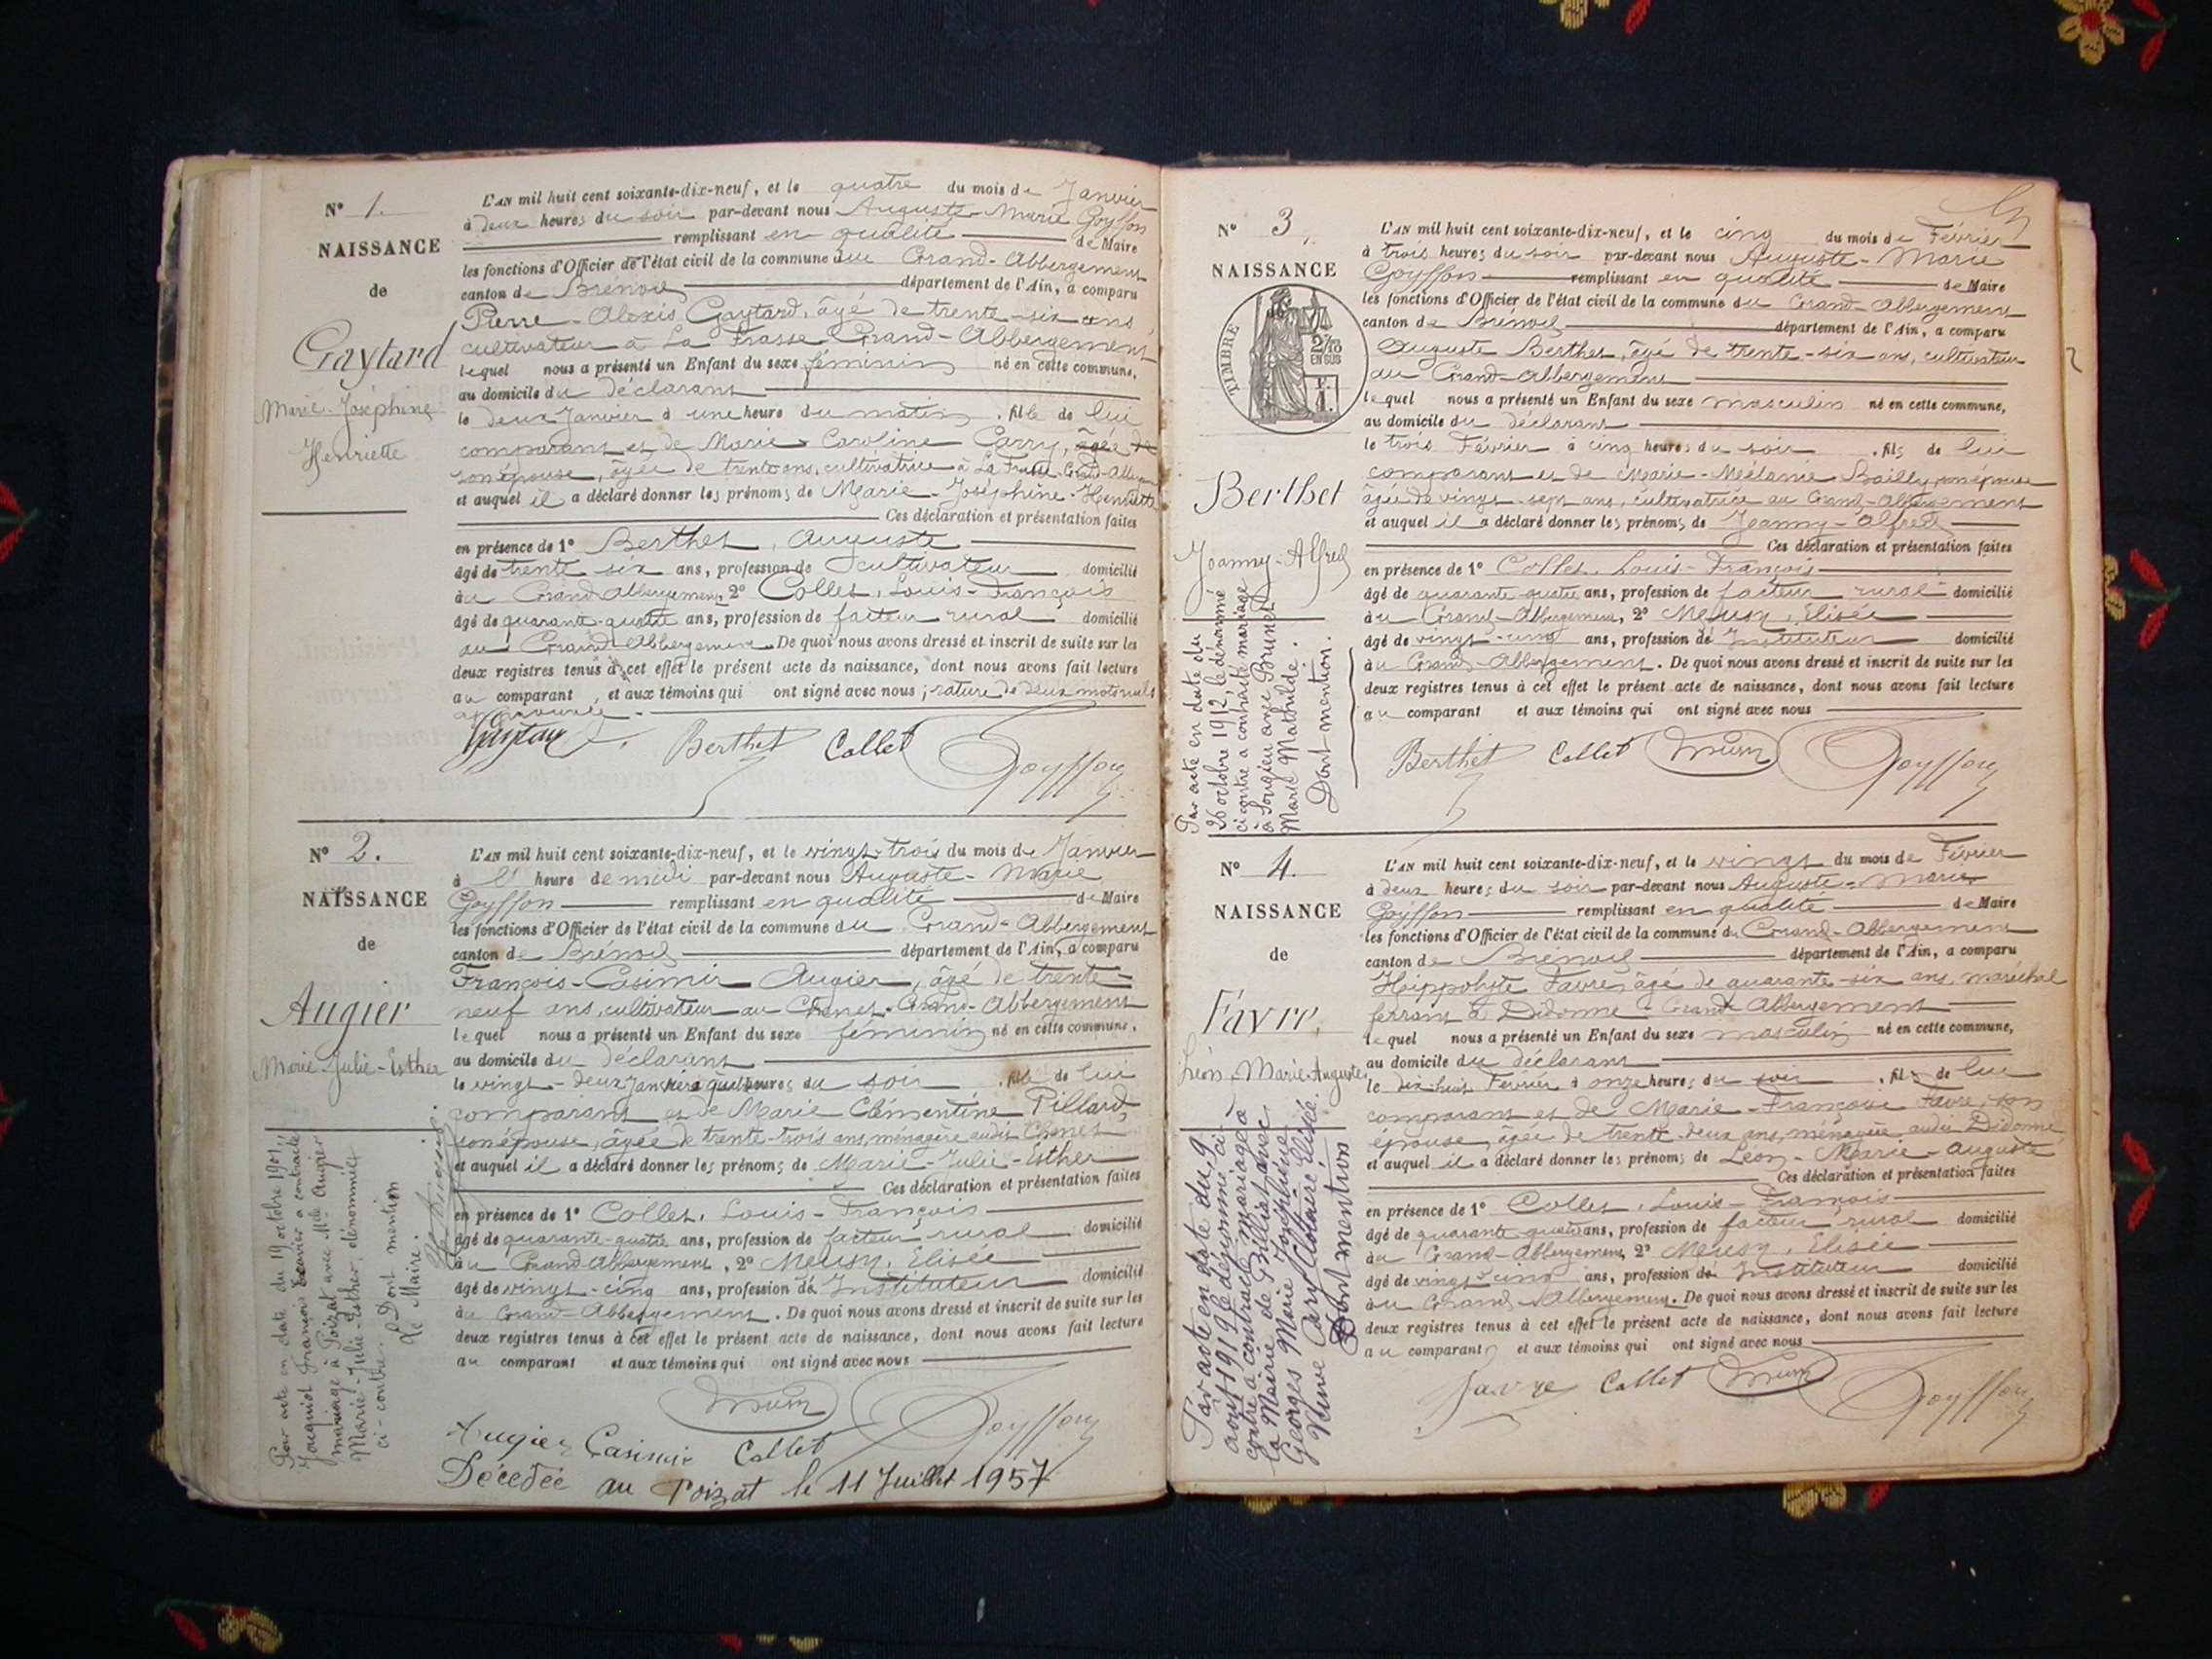 N° 1.
NAISSANCE
de
Gaytard
Marie-Joséphine
Henriette
L'AN mil huit cent soixante-dix-neuf, et le quatre du mois de Janvier
à deux heures du soir par-devant nous Auguste-Marie Goyffon
remplissant en qualité de Maire
les fonctions d'Officier de l'état civil de la commune du Grand-Abbergement
canton de Brénod département de l'Ain, a comparu
Pierre-Alexis Gaytard, âgé de trente-six ans,
cultivateur à La Frasse Grand-Abbergement
lequel nous a présenté un Enfant du sexe féminin né en cette commune,
au domicile du déclarant
le deux Janvier à une heure du matin, fille de lui
comparant et de Marie Caroline Carry, âgée de
son épouse, âgée de trente ans, cultivatrice à La Frasse Grand-Abberg
et auquel il a déclaré donner les prénoms de Marie-Joséphine-Henriette
Ces déclaration et présentation faites
en présence de 1° Berthet, Auguste
âgé de trente six ans, profession de cultivateur domicilié
au Grand Abbergement, 2° Collet, Louis-François
âgé de quarante-quatre ans, profession de facteur rural domicilié
au Grand-Abbergement. De quoi nous avons dressé et inscrit de suite sur les
deux registres tenus à cet effet le présent acte de naissance, dont nous avons fait lecture
au comparant, et aux témoins qui ont signé avec nous; rature de deux mots nuls
approuvée.
Gaytard Berthet Collet Goyffon
N° 2.
NAISSANCE
de
Augier
Marie-Julie-Esther
Par acte en date du 19 octobre 1901,
Jouquiol François a contracté
mariage à Poizat avec Mlle Augier
Marie-Julie-Esther, dénommée
ci-contre. Dont mention
Le Maire.
L'AN mil huit cent soixante-dix-neuf, et le vingt-trois du mois de Janvier
à l' heure de midi par-devant nous Auguste-Marie
Goyffon remplissant en qualité de Maire
les fonctions d'Officier de l'état civil de la commune du Grand-Abbergement
canton de Brénod département de l'Ain, a comparu
François-Casimir Augier, âgé de trente-
neuf ans, cultivateur au Chenet-Grand-Abbergement
lequel nous a présenté un Enfant du sexe féminin né en cette commune,
au domicile du déclarant
le vingt-deux Janvier à heures du soir, fille de lui
comparant et de Marie Clémentine Pillard,
son épouse, âgée de trente-trois ans, ménagère audit Chenet
et auquel il a déclaré donner les prénoms de Marie-Julie-Esther
Ces déclaration et présentation faites
en présence de 1° Collet, Louis-François
âgé de quarante-quatre ans, profession de facteur rural domicilié
au Grand Abbergement, 2° Meusy, Elisée
âgé de vingt-cinq ans, profession de Instituteur domicilié
au Grand-Abbergement. De quoi nous avons dressé et inscrit de suite sur les
deux registres tenus à cet effet le présent acte de naissance, dont nous avons fait lecture
au comparant et aux témoins qui ont signé avec nous
Augier Casimir Collet Meusy Goyffon
Décédée au Poizat le 11 Juillet 1957
N° 3.
NAISSANCE
TIMBRE
2/10
EN SUS
Berthet
Joanny-Alfred
Par acte en date du
26 octobre 1912, le dénommé
ci contre a contracté mariage
à Songieu avec Brunet
Marie Mathilde.
Dont mention.
L'AN mil huit cent soixante-dix-neuf, et le cinq du mois de Février
à trois heures du soir par-devant nous Auguste-Marie
Goyffon remplissant en qualité de Maire
les fonctions d'Officier de l'état civil de la commune du Grand-Abbergement
canton de Brénod département de l'Ain, a comparu
Auguste Berthet, âgé de trente-six ans, cultivateur
au Grand-Abbergement
lequel nous a présenté un Enfant du sexe masculin né en cette commune,
au domicile du déclarant
le trois Février à cinq heures du soir, fils de lui
comparant et de Marie-Mélanie Bailly, son épouse
âgée de vingt-sept ans, cultivatrice au Grand-Abbergement
et auquel il a déclaré donner les prénoms de Joanny-Alfred
Ces déclaration et présentation faites
en présence de 1° Collet, Louis-François
âgé de quarante quatre ans, profession de facteur rural domicilié
au Grand-Abbergement, 2° Meusy, Elisée
âgé de vingt-cinq ans, profession de Instituteur domicilié
au Grand-Abbergement. De quoi nous avons dressé et inscrit de suite sur les
deux registres tenus à cet effet le présent acte de naissance, dont nous avons fait lecture
au comparant et aux témoins qui ont signé avec nous
Berthet Collet Meusy Goyffon
N° 4.
NAISSANCE
de
Favre
Léon-Marie-Auguste
Par acte en date du 9
août 1919 le dénommé ci-
contre a contracté mariage à
la Mairie de Billiat avec
Georges Marie Joséphine
Veuve Cary Clotaire Elisée.
Dont mention
L'AN mil huit cent soixante-dix-neuf, et le vingt du mois de Février
à deux heures du soir par-devant nous Auguste-Marie
Goyffon remplissant en qualité de Maire
les fonctions d'Officier de l'état civil de la commune du Grand-Abbergement
canton de Brénod département de l'Ain, a comparu
Hippolyte Favre, âgé de quarante-six ans, maréchal
ferrant à Didonne Grand Abbergement
lequel nous a présenté un Enfant du sexe masculin né en cette commune,
au domicile du déclarant
le dix huit Février à onze heures du soir, fils de lui
comparant et de Marie-Françoise Favre, son
épouse, âgée de trente-deux ans, ménagère audit Didonne
et auquel il a déclaré donner les prénoms de Léon-Marie-Auguste
Ces déclaration et présentation faites
en présence de 1° Collet, Louis-François
âgé de quarante quatre ans, profession de facteur rural domicilié
au Grand-Abbergement, 2° Meusy, Elisée
âgé de vingt-cinq ans, profession de Instituteur domicilié
au Grand-Abbergement. De quoi nous avons dressé et inscrit de suite sur les
deux registres tenus à cet effet le présent acte de naissance, dont nous avons fait lecture
au comparant et aux témoins qui ont signé avec nous
Favre Collet Meusy Goyffon